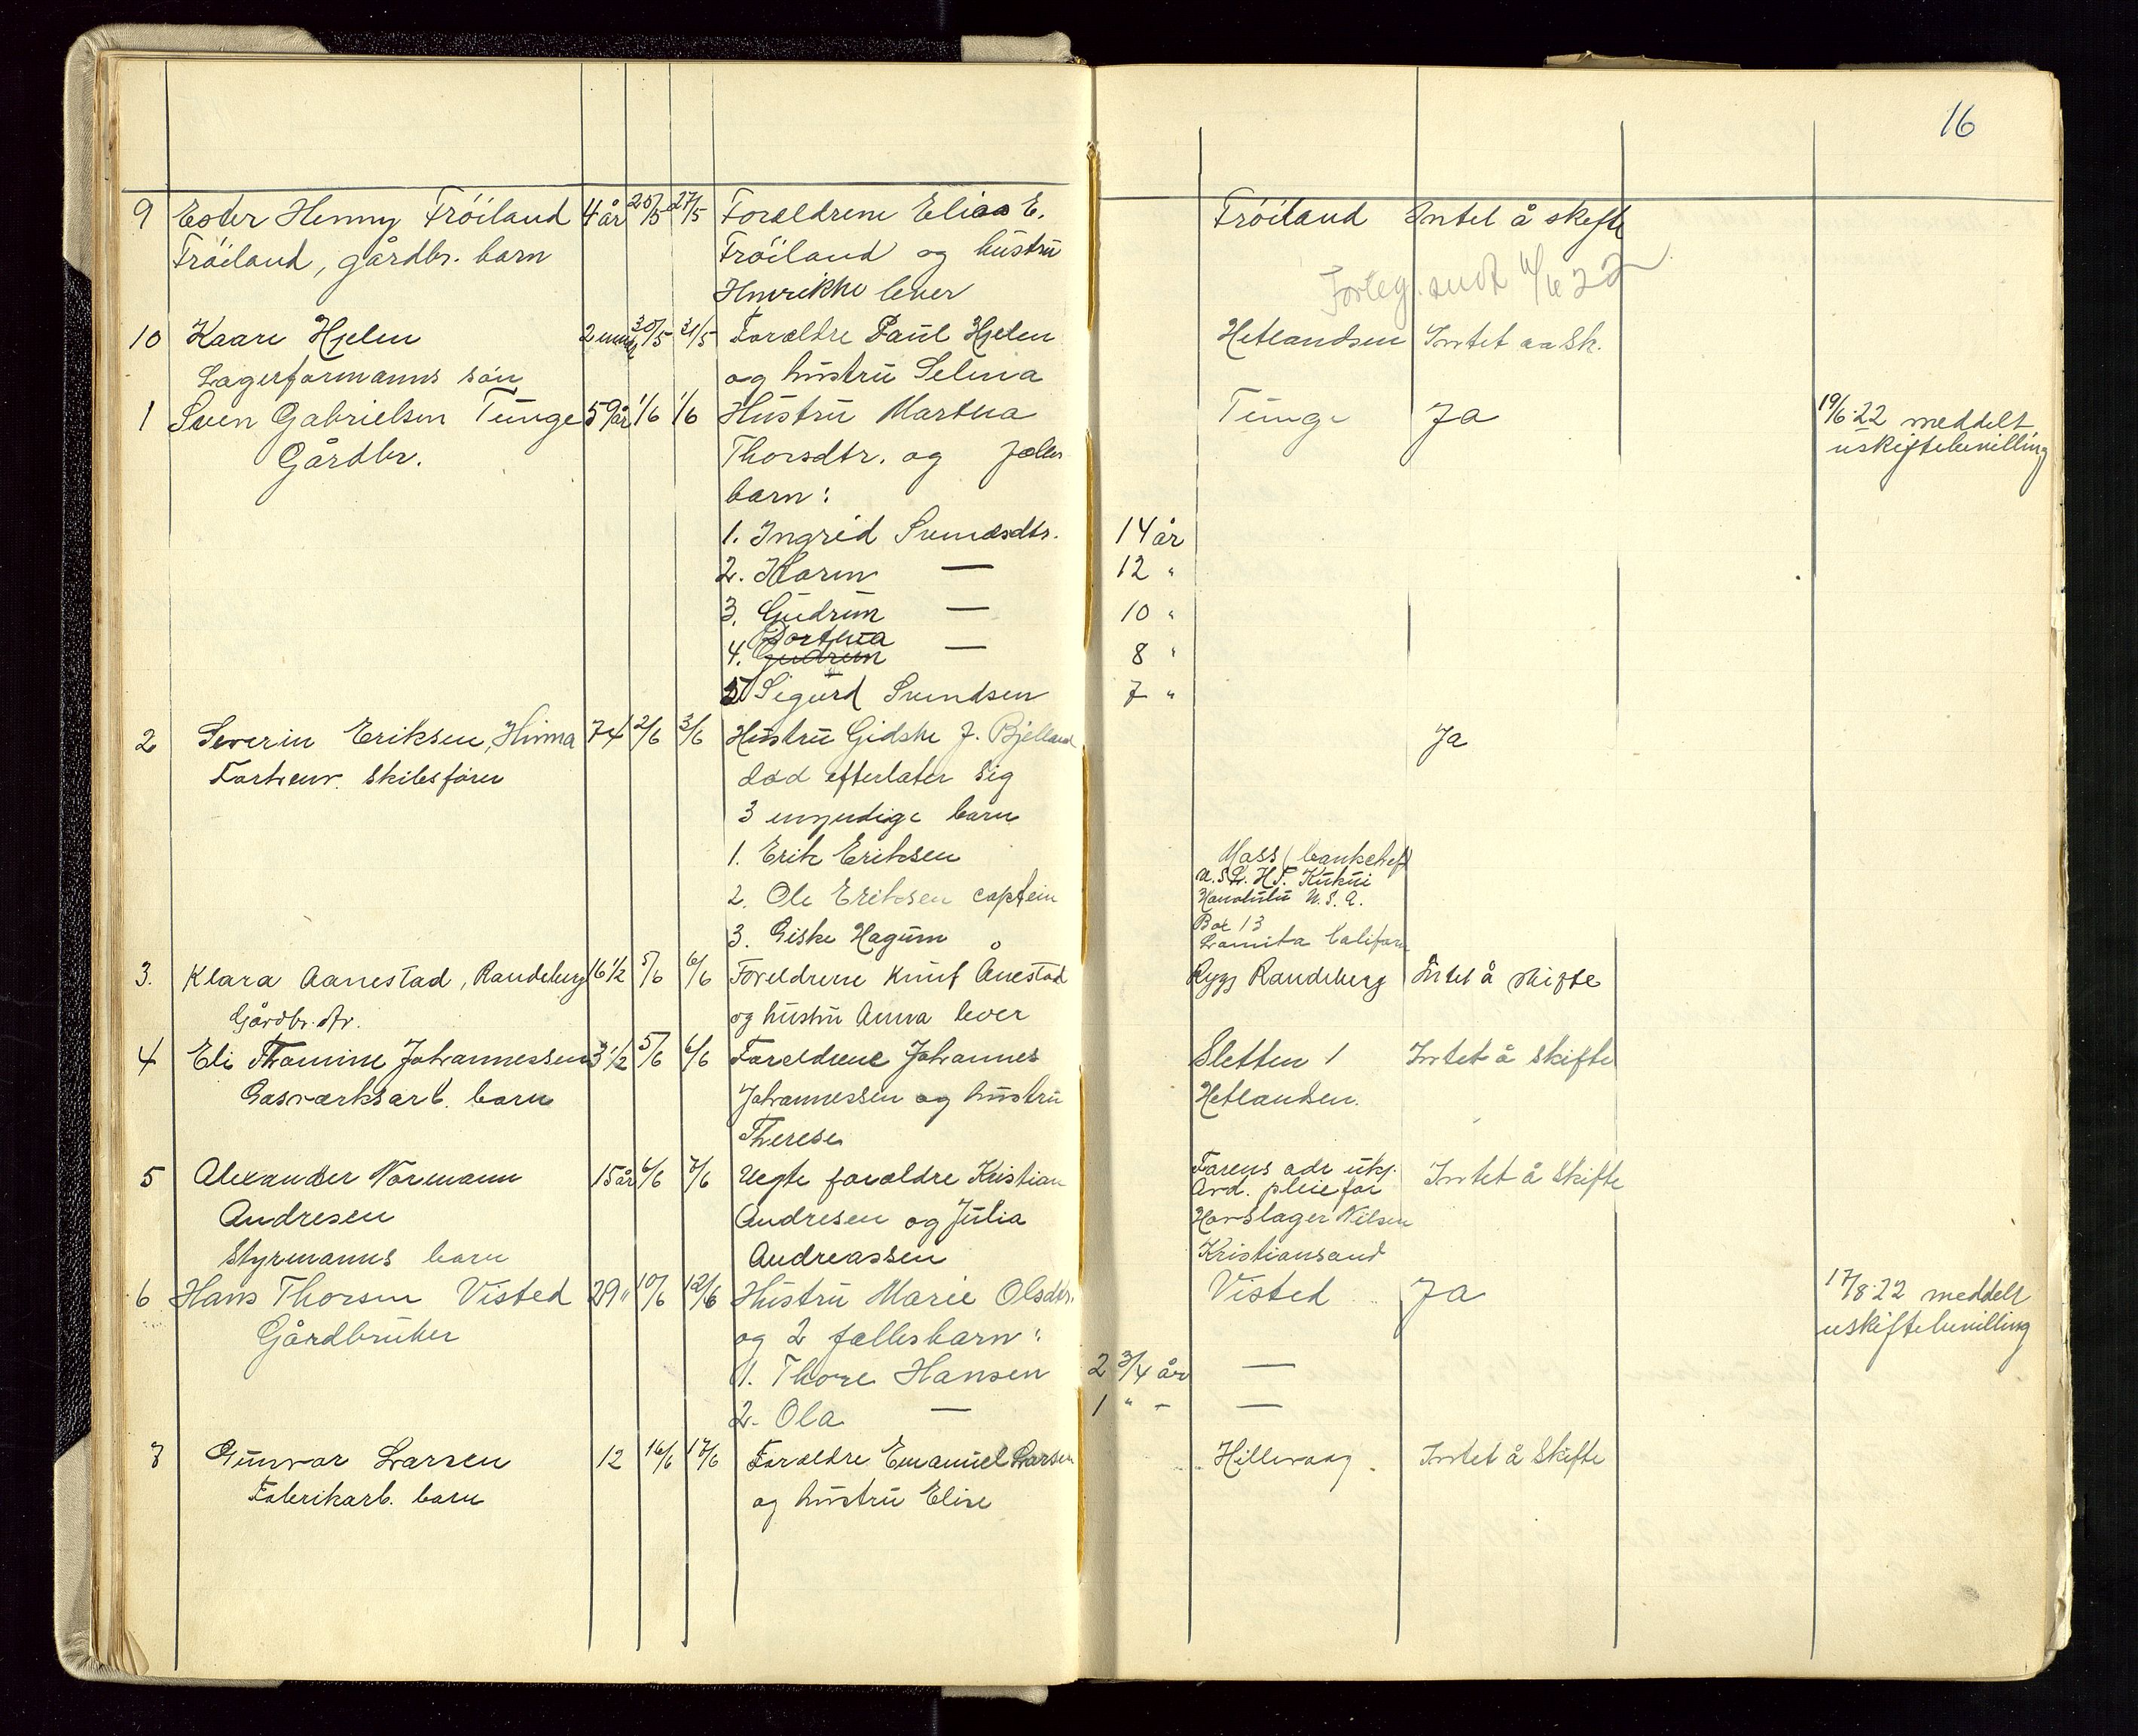 16
9 Ester Henny Fröiland 4 år 25/5 27/5 Forældrene Elias E. Fröiland Intet å skifte
Fröiland, gårdbr. barn Fröiland og hustru
Henrikke lever Forleg. sendt 22
10 Kaare Hjelen 2 mndr 30/5 31/5 Forældre Paul Hjelen Hetlandsen Intet aa Sk.
Lagerformanns sön og hustru Selma
1 Sven Gabrielsen Tunge 59 år 1/6 1/6 Hustru Martha Tunge Ja 19/6·22 meddelt
Gårdbr. Thorsdtr. og fælles uskiftebevilling
barn:
1. Ingrid Svendsdtr. 14 år
2. Karen — 12 "
3. Gudrun — 10 "
Bortina
4. Gudrun — 8 "
5 Sigurd Svendsen 7 "
2 Severin Eriksen, Hinna 74 2/6 3/6 Hustru Gidske J. Bjelland Ja
Forhenv. skibsförer död efterlater sig
3 umyndige barn
1. Erik Eriksen Mass (
2. Ole Eriksen captein U.S.L. H.S. Kukui
Honolulu U.S.A.
3. Giske Hagum Box 13
Lomita Californ
3. Klara Aanestad, Randeberg 16 1/2 5/6 6/6 Foreldrene Knut Anestad Rygg Randeberg Intet å skifte
Gårdbr. dtr. og hustru Anna lever
4 Eli Thomine Johannessen 3 1/2 5/6 6/6 Foreldrene Johannes Sletten 1 Intet å skifte
Gasværksarb. barn Johannessen og hustru Hetlandsen.
Therese
5 Alexander Normann 15 år 6/6 7/6 Uegte forældre Kristian Farens adr. ukj. Intet å skifte
Andresen Andresen og Julia Avd. pleiefar
Styrmanns barn Andreassen Hovslager Nilsen
Kristiansand
6 Hans Thorsen Visted 29 " 10/6 12/6 Hustru Marie Olsdtr. Visted Ja 17/8·22 meddelt
Gårdbruker og 2 fællesbarn: uskiftebevilling
1. Thore Hansen 2 3/4 år —
2. Ola — 1 " - —
7 Gunvor Larsen 12 16/6 17/6 Forældre Emanuel Larsen Hillevaag. Intet å skifte
Fabrikarb. barn og hustru Elise